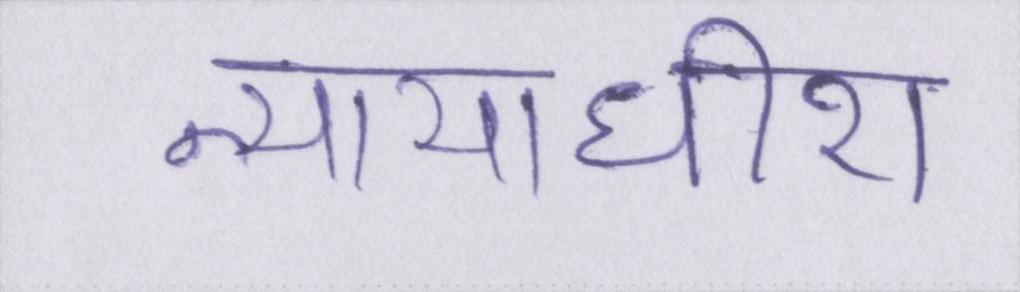 न्यायाधीश